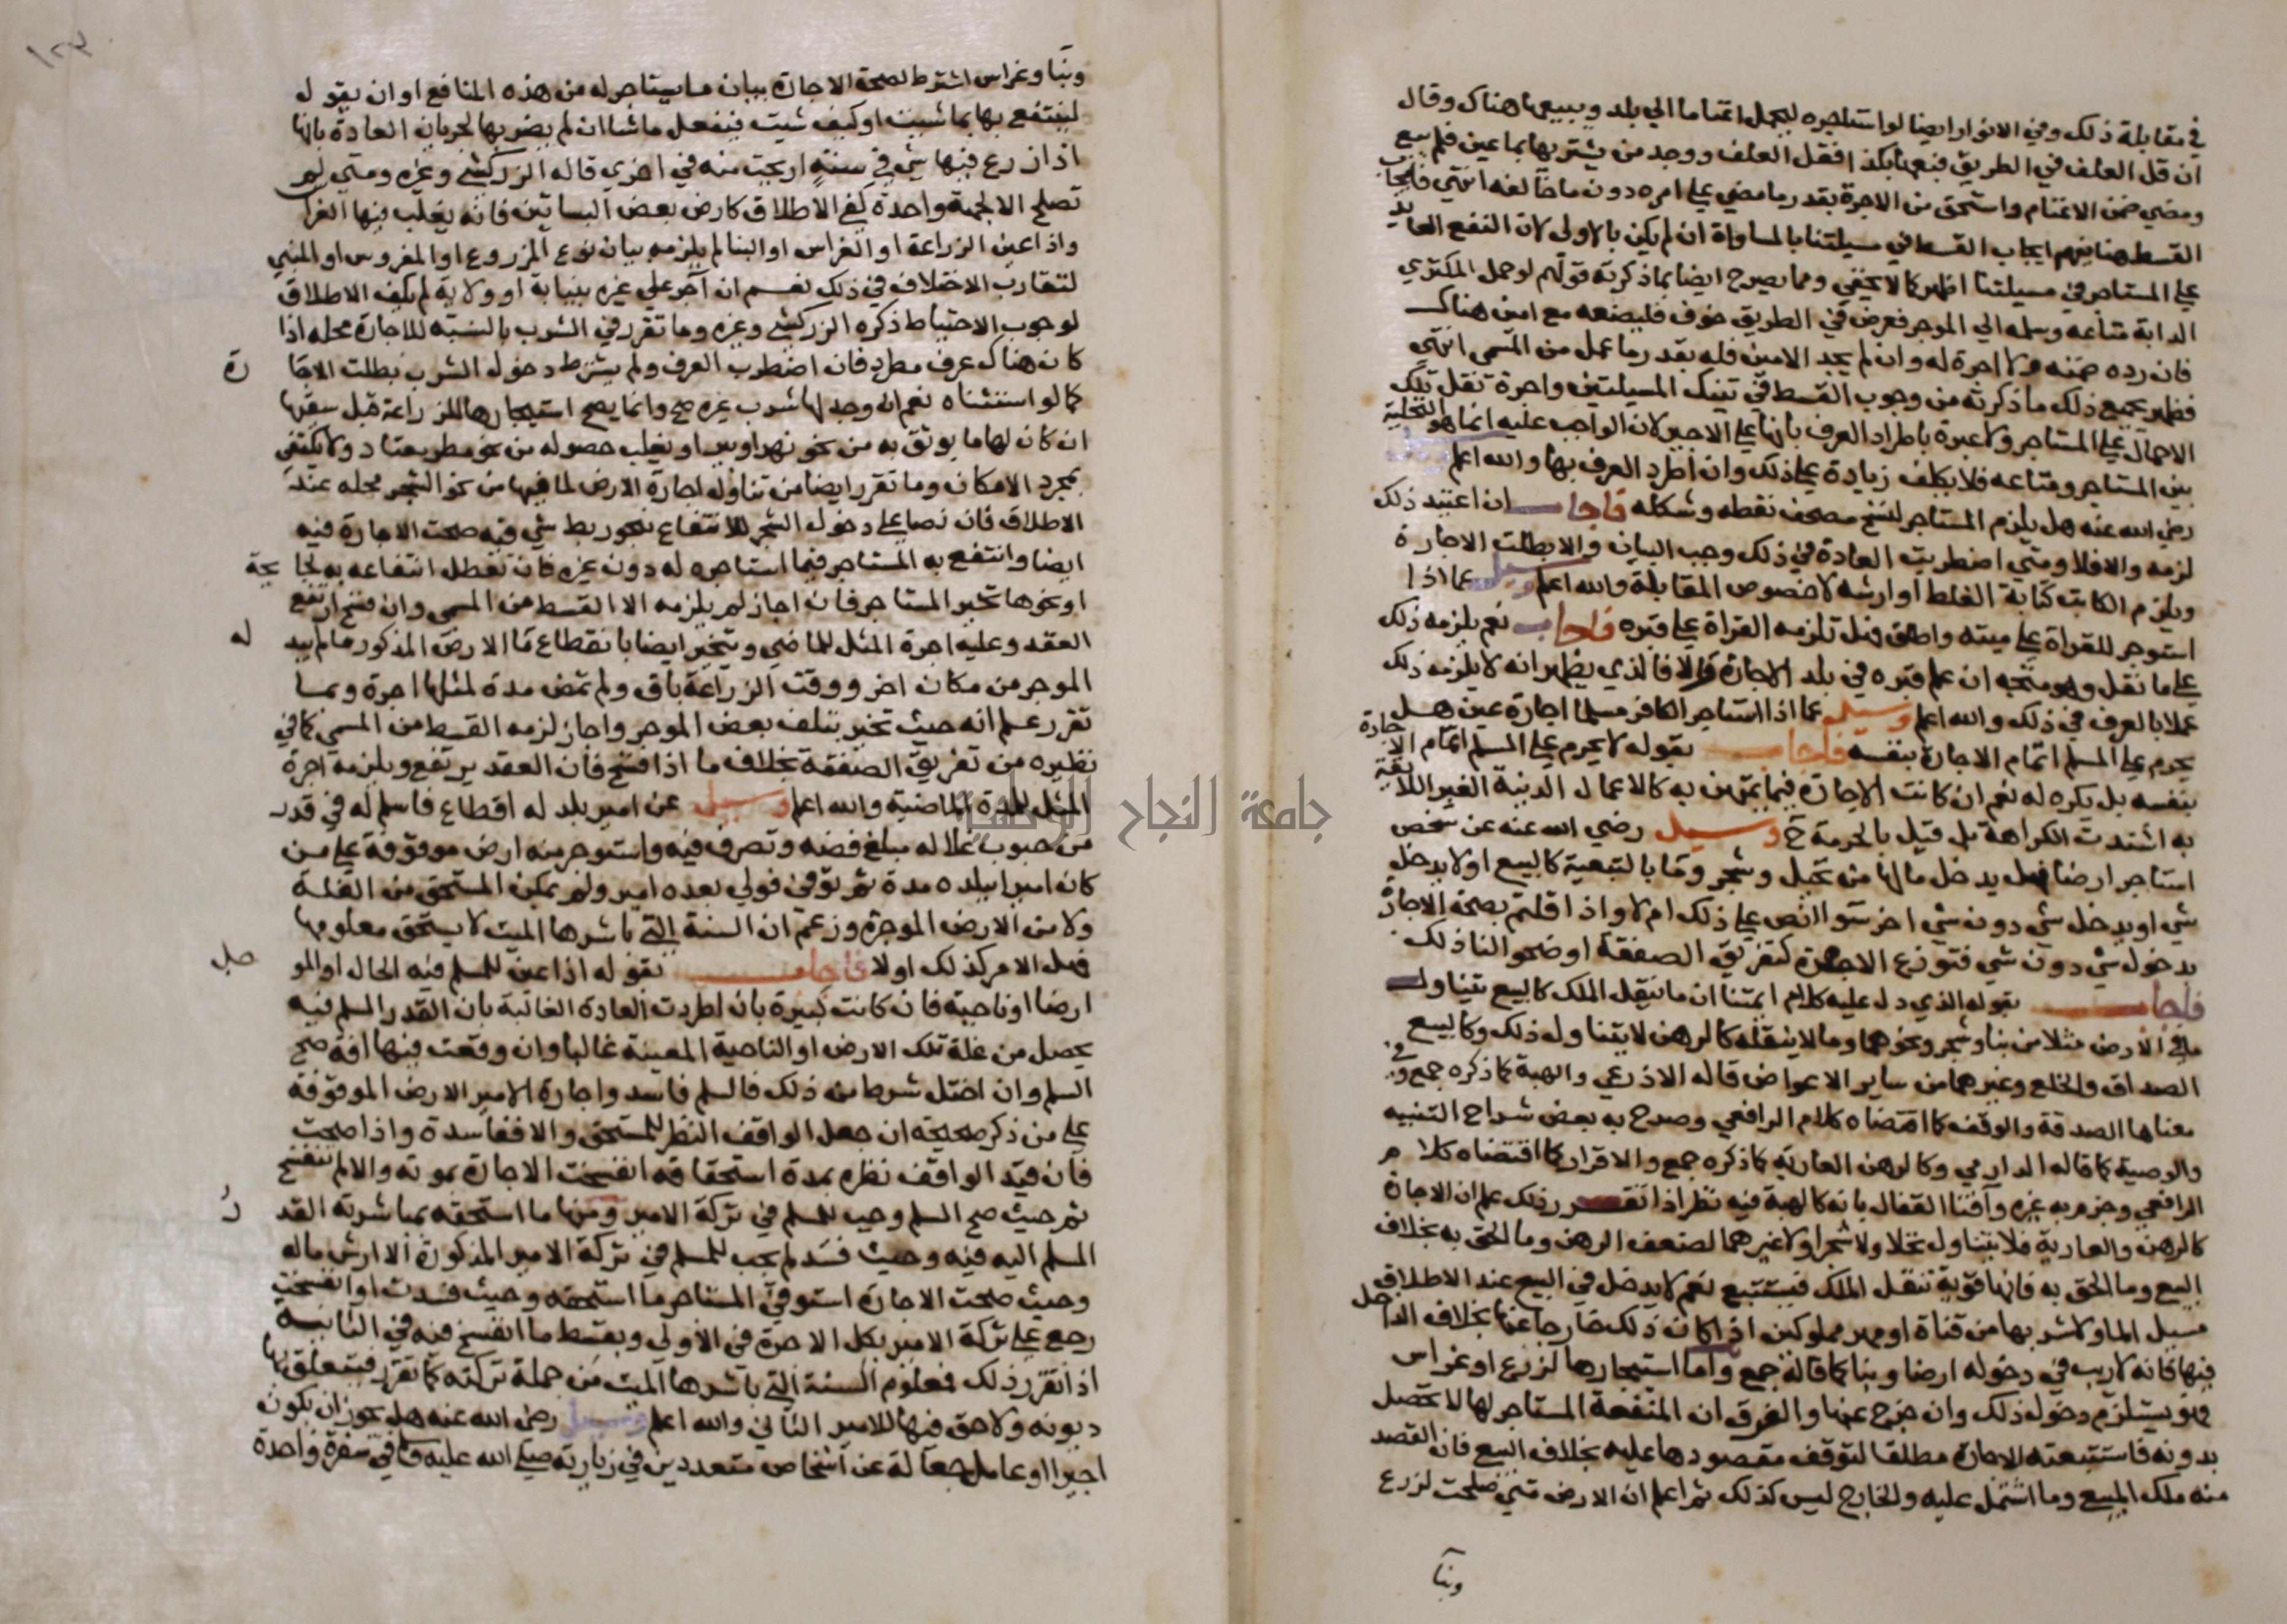 في مقابلة ذلك وفي الانوار ايضا لو استاجره ليحمل اغناما الي بلد ويبيعها هناك وقال
ان قل العلف في الطريق فبعها بكذا فقل العلف ووجد من يشتريها بما عين فلم يبع
ومضي ضمن الاغنام واستحق من الاجرة بقدر ما مضي علي امره دون ما خالفه انتهي فايجاب
القسط هنا يفهم ايجاب القسط في مسيلتنا بالمساواة ان لم يكن بالاولي لان النفع العايد
علي المستاجر في مسيلتنا اظهر كما لا يخفي ومما يصرح ايضا بما ذكرته قولهم لو حمل المكتري
الدابة متاعه وسلمه الي الموجر فعرض في الطريق خوف فليضعه مع امين هناك
فان رده ضمنه ولا اجرة له وان لم يجد الامين فله بقدر ما عمل من المسمي انتهي
فظهر بجميع ذلك ما ذكرته من وجوب القسط في تينك المسيلتين واجرة نقل تلك
الاحمال علي المستاجر ولا عبرة باطراد العرف بانها علي الاجير لان الواجب عليه انما هو التخلية
بين المستاجر ومتاعه فلا يكلف زيادة علي ذلك وان اطرد العرف بها والله اعلم وسيل
رضي الله عنه هل يلزم المستاجر لنسخ مصحف نقطه وشكله فاجاب ان اعتيد ذلك
لزمه والا فلا ومتي اضطربت العادة في ذلك وجب البيان والا بطلت الاجارة
ويلزم الكاتب كتابة الغلط او ارشه لا خصوص المقابلة والله اعلم وسيل عما اذا
استوجر للقراة علي ميته واطلق فهل تلزمه القراة علي قبره فاجاب نعم يلزمه ذلك
علي ما نقل وهو متجه ان علم قبره في بلد الاجارة والا فالذي يظهر انه لا يلزمه ذلك
عملا بالعرف في ذلك والله اعلم وسيل عما اذا استاجر الكافر مسلما اجارة عين هل
يحرم علي المسلم اتمام الاجارة بنفسه فاجاب بقوله لا يحرم علي المسلم اتمام الاجارة
بنفسه بل يكره له نعم ان كانت الاجارة فيما يمتهن به كالاعمال الدنية الغير اللايقة
به اشتدت الكراهة بل قيل بالحرمة ح وسيل رضي الله عنه عن شخص
استاجر ارضا فهل يدخل ما لها من نخيل وشجر وما بالتبعية كالبيع او لا يدخل
شي او يدخل شي دون شي اخر سوا انص علي ذلك ام لا واذا قلتم بصحة الاجارة
بدخول شي دون شي فتوزع الاجرة كتفريق الصفقة اوضحوا لنا ذلك
فاجاب بقوله الذي دل عليه كلام ائمتنا ان ما ينقل الملك كالبيع يتناول
ما في الارض مثلا من بنا وشجر ونحوهما وما لا ينقله كالرهن لا يتناول ذلك وكالبيع
الصداق والخلع وغيرهما من ساير الاعواض قاله الاذرعي والهبة كما ذكره جمع وفي
معناها الصدقة والوقف كما اقتضاه كلام الرافعي وصرح به بعض شراح التنبيه
والوصية كما قاله الدارمي وكالرهن العارية كما ذكره جمع والاقرار كما اقتضاه كلام
الرافعي وجزم به غيره وافتا القفال بانه كالهبة فيه نظر اذا تقرر ذلك علم ان الاجارة
كالرهن والعارية فلا يتناول نخلا ولا شجرا ولا غيرهما لضعف الرهن وما الحق به بخلاف
البيع وما الحق به فانها قوية تنقل الملك فيستتبع نعم لا يدخل في البيع عند الاطلاق
مسيل الما ولا شربها من قناة او نهر مملوكين اذا كان ذلك خارجا عنها بخلاف الداخل
فيها فانه لا ريب في دخوله ارضا وبنا كما قاله جمع واما استيجارها لزرع او غراس
فهو يستلزم دخول ذلك وان خرج عنها والفرق ان المنفعة المستاجر لها لا تحصل
بدونه فاستتبعته الاجارة مطلقا لتوقف مقصودها عليه بخلاف البيع فان القصد
منه ملك المبيع وما اشتمل عليه والخارج ليس كذلك ثم اعلم ان الارض متي صلحت لزرع
وبنا
١٢٣
وبنا وغراس اشترط لصحة الاجارة بيان ما يستاجر له من هذه المنافع او ان يقول
لينتفع بها بما شيت او كيف شيت فيفعل ما شا ان لم يضر بها لجريان العادة بانها
اذا زرع فيها شي في سنة اريحت منه في اخري قاله الزركشي وغيره ومتي لم
تصلح الا لجهة واحدة كفي الاطلاق كارض بعض البساتين فانه يغلب فيها الغراس
واذا عين الزراعة او الغراس او البنا لم يلزمه بيان نوع المزروع او المغروس او المبني
لتقارب الاختلاف في ذلك نعم ان آجر علي غيره بنيابة او ولاية لم يكف الاطلاق
لوجوب الاحتياط ذكره الزركشي وغيره وما تقرر في الشرب بالنسبة للاجارة محله اذا
كان هناك عرف مطرد فان اضطرب العرف ولم يشترط دخول الشرب بطلت الاجارة
كما لو استثناه نعم ان وجد لها شرب غيره صح وانما يصح استيجارها للزراعة قبل سقيها
ان كان لها ما يوثق به من نحو نهر او بير او يغلب حصوله من نحو مطر معتاد ولا يكتفي
بمجرد الامكان وما تقرر ايضا من تناول اجارة الارض لما فيها من نحو الشجر محله عند
الاطلاق فان نصا علي دخول الشجر للانتفاع بنحو ربط شي فيه صحت الاجارة فيه
ايضا وانتفع به المستاجر فيما استاجره له دون غيره فان تعطل انتفاعه به لجايحة
او نحوها تخير المستاجر فان اجاز لم يلزمه الا القسط من المسمي وان فسخ ارتفع
العقد وعليه اجرة المثل للماضي وتخير ايضا بانقطاع ما الارض المذكور ما لم يبد له
الموجر من مكان اخر ووقت الزراعة باق ولم تمض مدة لمثلها اجرة وبما
تقرر علم انه حيث تخير بتلف بعض الموجر واجاز لزمه القسط من المسمي كما في
نظيره من تفريق الصفقة بخلاف ما اذا فسخ فان العقد يرتفع ويلزمه اجرة
المثل للمدة الماضية والله اعلم وسيل عن امير بلد له اقطاع فاسلم له في قدر
من حبوب غلاله مبلغ فضه وتصرف فيه واستوجر منه ارض موقوفة علي من
كان اميرا ببلده مدة ثم توفي فولي بعده امير ولم يمكن المستحق من الغلة
ولا من الارض الموجرة وزعم ان السنة التي باشرها الميت لا يستحق معلومها
فهل الامر كذلك اولا فاجاب بقوله اذا عين للمسلم فيه الحال او الموجل
ارضا او ناحية فان كانت كبيرة بان اطردت العادة الغالبة بان القدر المسلم فيه
يحصل من غلة تلك الارض او الناحية المعينة غالبا وان وقعت فيها افة صح
السلم وان اختل شرط من ذلك فالسلم فاسد واجارة الامير الارض الموقوفة
علي من ذكر صحيحة ان جعل الواقف النظر للمستحق والا ففاسدة واذا صحت
فان قيد الواقف نظره بمدة استحقاقه انفسخت الاجارة بموته والا لم تنفسخ
ثم حيث صح السلم وجب للمسلم في تركة الامير ومنها ما استحقه بمباشرته القدر
المسلم اليه فيه وحيث فسد لم يجب للمسلم في تركة الامير المذكورة الا ارش ماله
وحيث صحت الاجارة استوفي المستاجر ما استحقه وحيث فسدت او انفسخت
رجع علي تركة الامير بكل الاجرة في الاولي وبقسط ما انفسخ فيه في الثانية
اذا تقرر ذلك فمعلوم السنة التي باشرها الميت من جملة تركته كما تقرر فيتعلق بها
ديونه ولا حق فيها للامير الثاني والله اعلم وسيل رضي الله عنه هل يجوز ان يكون
اجيرا او عامل جعالة عن اشخاص متعددين في زيارته صلي الله عليه وسلم في سفرة واحدة
جامعة النجاح الوطنية